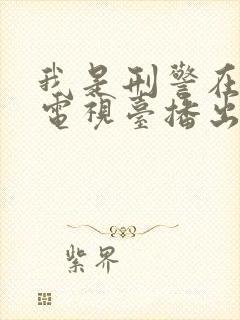 我是刑警在
電視臺播出
紫界